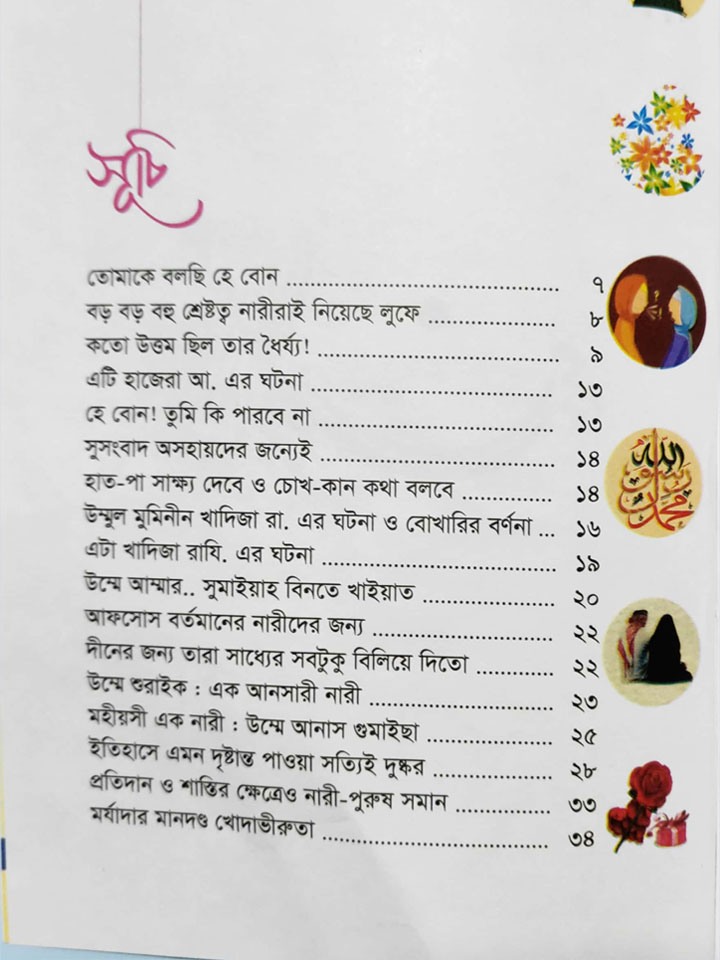 সূচি
তোমাকে বলছি হে বোন ........................................ ৭
বড় বড় বহু শ্রেষ্টত্ব নারীরাই নিয়েছে লুফে ................... ৮
কতো উত্তম ছিল তার ধৈর্য্য! ................................... ৯
এটি হাজেরা আ. এর ঘটনা ................................... ১৩
হে বোন! তুমি কি পারবে না .................................. ১৩
সুসংবাদ অসহায়দের জন্যেই .................................. ১৪
হাত-পা সাক্ষ্য দেবে ও চোখ-কান কথা বলবে ............. ১৪
উম্মুল মুমিনীন খাদিজা রা. এর ঘটনা ও বোখারির বর্ণনা ... ১৬
এটা খাদিজা রাযি. এর ঘটনা .................................. ১৯
উম্মে আম্মার.. সুমাইয়াহ বিনতে খাইয়াত ................... ২০
আফসোস বর্তমানের নারীদের জন্য ........................... ২২
দীনের জন্য তারা সাধ্যের সবটুকু বিলিয়ে দিতো ........... ২২
উম্মে শুরাইক : এক আনসারী নারী ........................... ২৩
মহীয়সী এক নারী : উম্মে আনাস গুমাইছা ................... ২৫
ইতিহাসে এমন দৃষ্টান্ত পাওয়া সত্যিই দুষ্কর .................. ২৮
প্রতিদান ও শাস্তির ক্ষেত্রেও নারী-পুরুষ সমান .............. ৩৩
মর্যাদার মানদণ্ড খোদাভীরুতা ................................. ৩৪
الله
رسول
محمد